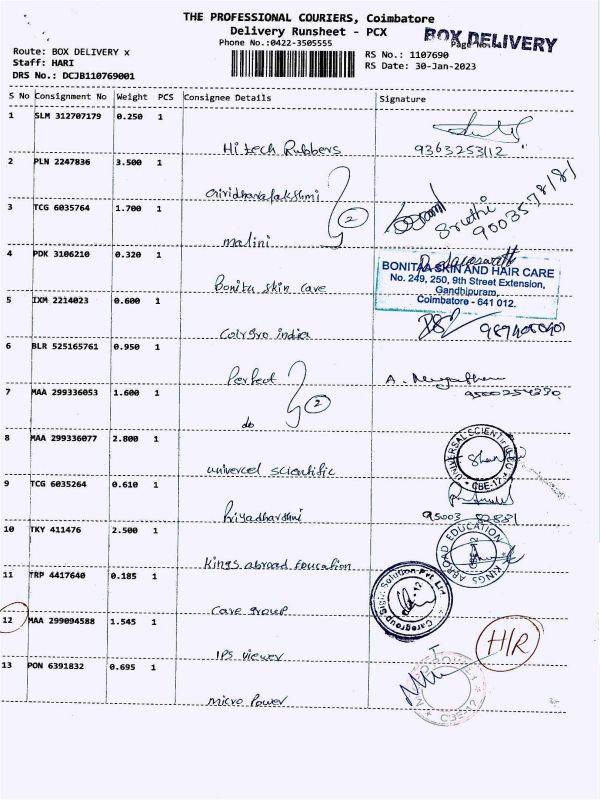 THE PROFESSIONAL COURIERS, Coimbatore
Delivery Runsheet - PCX
Phone No.:0422-3505555
BOX DELIVERY
Route: BOX DELIVERY x
Staff: HARI
DRS No.: DCJB110769001
RS No.: 1107690
RS Date: 30-Jan-2023
S No Consignment No Weight PCS Consignee Details Signature
1 SLM 312707179 0.250 1
Hitech Rubbers 9363253112
2 PLN 2247836 3.500 1
3 TCG 6035764 1.700 1
2
Sruthi
9003578181
malini
4 PDK 3106210 0.320 1
Bonita skin care
BONITAA SKIN AND HAIR CARE
No. 249, 250, 9th Street Extension,
Gandhipuram,
Coimbatore - 641 012.
5 IXM 2214023 0.600 1
Colrgro india
6 BLR 525165761 0.950 1
Perfect
7 MAA 299336053 1.600 1
2
do
8 MAA 299336077 2.800 1
univercel scientific
UNIVERSAL SCIENTIFIC
CBE-12
9 TCG 6035264 0.610 1
Priyadharshni
10 TKY 411476 2.500 1
Kings abroad Education
KINGS ABROAD EDUCATION
11 TRP 4417640 0.185 1
Care group
Caregroup Sight Solution Pvt Ltd
12 MAA 299094588 1.545 1
IPS viewer
H/R
13 PON 6391832 0.695 1
micro Power
CBE-12